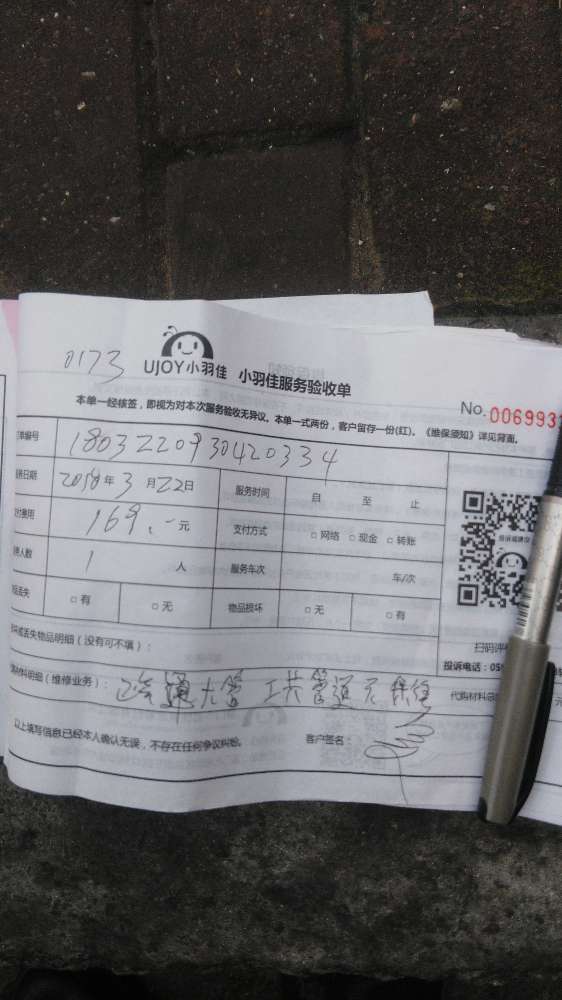 0173
UJOY小羽佳 小羽佳服务验收单
No.006993
本单一经核签，即视为对本次服务验收无异议。本单一式两份，客户留存一份(红)。《维保须知》详见背面。
单编号 18032209304203​34
务日期 2018年3月22日 服务时间 自 至 止
付费用 169.-元 支付方式 □网络 □现金 □转账
务人数 1 人 服务车次 车/次
品丢失 □有 □无 物品损坏 □无 □有
坏或丢失物品明细（没有可不填）：
扫码评
投诉电话：059
材料明细（维修业务）： 疏通大管 工共管道无保修 代购材料总 元
以上填写信息已经本人确认无误，不存在任何争议纠纷。 客户签名：